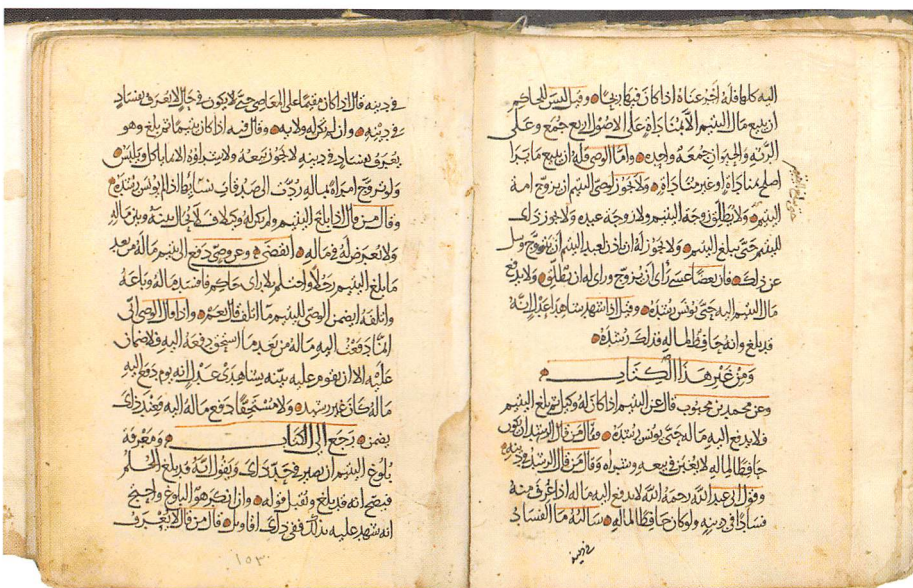 اليه كاملة اخير عناه اذا كان فيها ربحا وقيل ليس للحاكم
ان يبيع مال اليتيم الا بمناداة على الاصول اربع جمع وعلى
الرثة والحيوان جمعة واحدة واما الوصي فله ان يبيع ما يرا
اصلح مناداة او غير مناداة ولا يجوز لوصي اليتيم ان يزوج امة
اليتيم ولا يطلق زوجة اليتيم ولا زوجة عبده ولا يجوز ذلك
لليتيم حتى يبلغ اليتيم ولا يجوز له ان ياذن لعبد اليتيم ان يتزوج وسل
عن ذلك فان بعضا عسى راى ان يزوج وراى له ان يطلق ولا يدفع
مال اليتيم اليه حتى يونس رشده وقيل اذا شهد شاهدا عدل انه
قد بلغ وانه حافظ لماله فذلك رشده
ومن غير هذا الكتاب
وعن محمد بن محبوب قال عن اليتيم اذا كان له وكيل ثم بلغ اليتيم
فلا يدفع اليه ماله حتى يونس رشده فقال من قال الرشد ان يكون
حافظا لماله لا يغبن في بيعه وشراه وقال من قال الرشد في دينه
وقول ابي عبد الله رحمه الله لا يدفع اليه ماله اذا عرف منه
فسادا في دينه ولو كان حافظا لماله سالته ما الفساد
في دينه
في دينه قال اذا كان مقيما على المعاصي حتى لا يكون في حال لا يعرف بفساد
في دينه وان لم يكن له ولاية وقال فيه اذا كان يتيما ثم بلغ وهو
يعرف بفساد في دينه لا يجوز بيعه ولا شراؤه الا ما ياكل ويلبس
ولو تزوج امراة بماله ردت الصدقات اذا لم يونس رشده
وقال من قال اذا بلغ اليتيم ولم يكن له وكيل فلا يحال بينه وبين ماله
ولا يعرض له في ماله انقضى وعن وصي دفع الى يتيم ماله من بعد
ما بلغ اليتيم رجلا واحتلم بلا راى حاكم فافسد ماله وباعه
واتلفه ايضمن الوصي لليتيم ما اتلف قال نعم واذا قال الوصي اني
انما دفعت اليه ماله من بعد ما استحق دفعه اليه فلا ضمان
عليه الا ان يقوم عليه بينة بشاهدي عدل انه يوم دفع اليه
ماله كان غير رشيد ولا مستحقا دفع ماله اليه فعند ذلك
يضمن رجع الى الكتاب ومعرفة
بلوغ اليتيم ان يصير في حد ذلك ويقول انه قد بلغ الحلم
فيصح انه قد بلغ ويقبل قوله وان انكر هو البلوغ واحتج
انه شهد عليه بذلك ففي ذلك اقاويل قال من قال لا يعرف
١٥٣